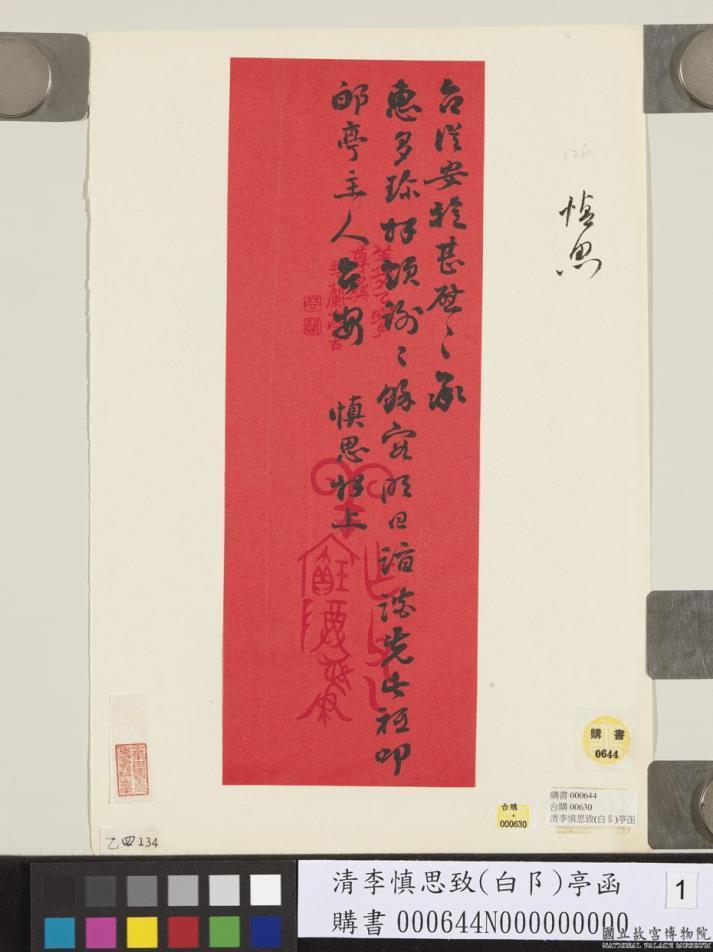 台從安穩甚慰〻承
惠多珍拜領謝〻餘容明日詣談先此祗叩
郋亭主人台安
慎思拜上
慎思
126
購書
0644
台購
000630
購書 000644
台購 00630
清李慎思致(白阝)亭函
乙四134
清李慎思致(白阝)亭函
購書 000644N000000000
1
國立故宮博物院
NATIONAL PALACE MUSEUM